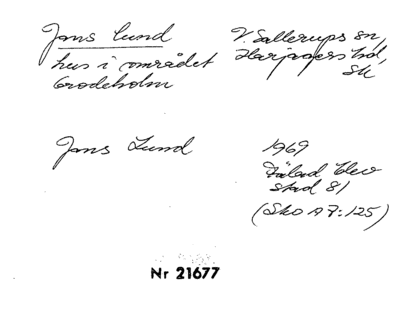 Jons Lund
hus i området
Trodeholm
V. Sallerups sn,
Harjagers hd,
Sk
Jons Lund
1969
stad 81
(Sko A7:125)
Nr 21677